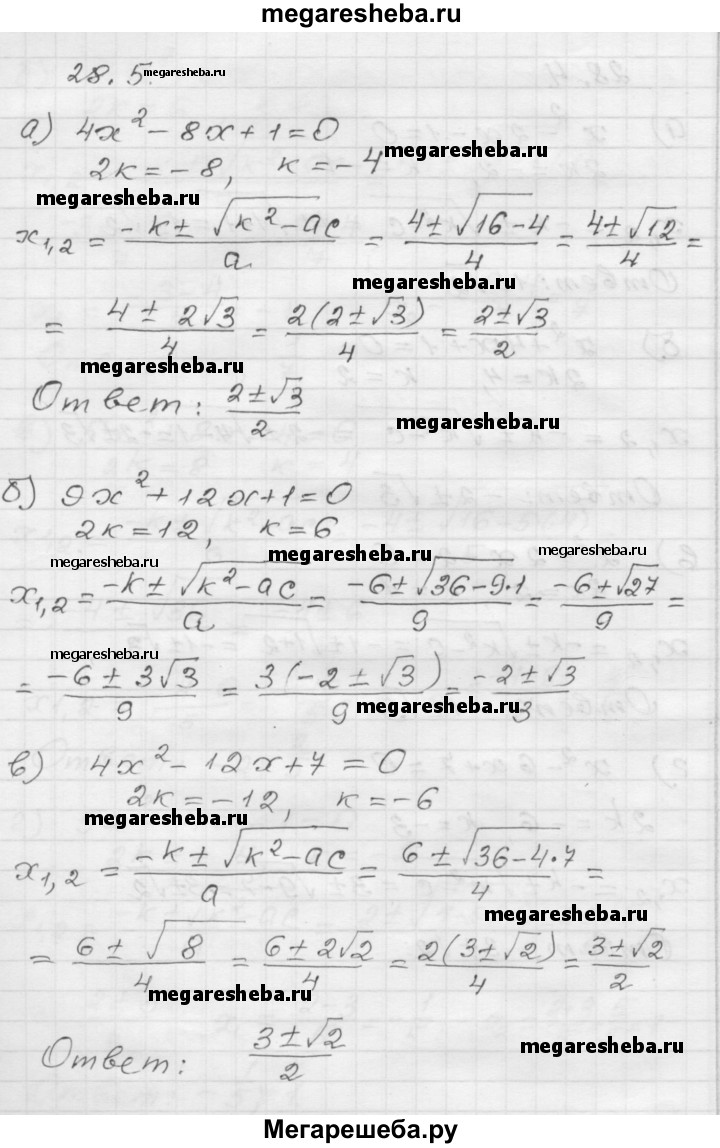 megaresheba.ru
28.5. megaresheba.ru
а) 4x² - 8x + 1 = 0
megaresheba.ru
2k = -8, k = -4
megaresheba.ru
x₁,₂ = (-k ± √(k² - ac))/a = (4 ± √(16 - 4))/4 = (4 ± √12)/4 =
megaresheba.ru
= (4 ± 2√3)/4 = (2(2 ± √3))/4 = (2 ± √3)/2
megaresheba.ru
Ответ: (2 ± √3)/2
megaresheba.ru
б) 9x² + 12x + 1 = 0
2k = 12, k = 6
megaresheba.ru megaresheba.ru megaresheba.ru
x₁,₂ = (-k ± √(k² - ac))/a = (-6 ± √(36 - 9·1))/9 = (-6 ± √27)/9 =
megaresheba.ru
= (-6 ± 3√3)/9 = (3(-2 ± √3))/9 = (-2 ± √3)/3
megaresheba.ru
в) 4x² - 12x + 7 = 0
2k = -12, k = -6
megaresheba.ru
x₁,₂ = (-k ± √(k² - ac))/a = (6 ± √(36 - 4·7))/4 =
megaresheba.ru
= (6 ± √8)/4 = (6 ± 2√2)/4 = (2(3 ± √2))/4 = (3 ± √2)/2
megaresheba.ru
Ответ: (3 ± √2)/2
megaresheba.ru
Мегарешеба.ру